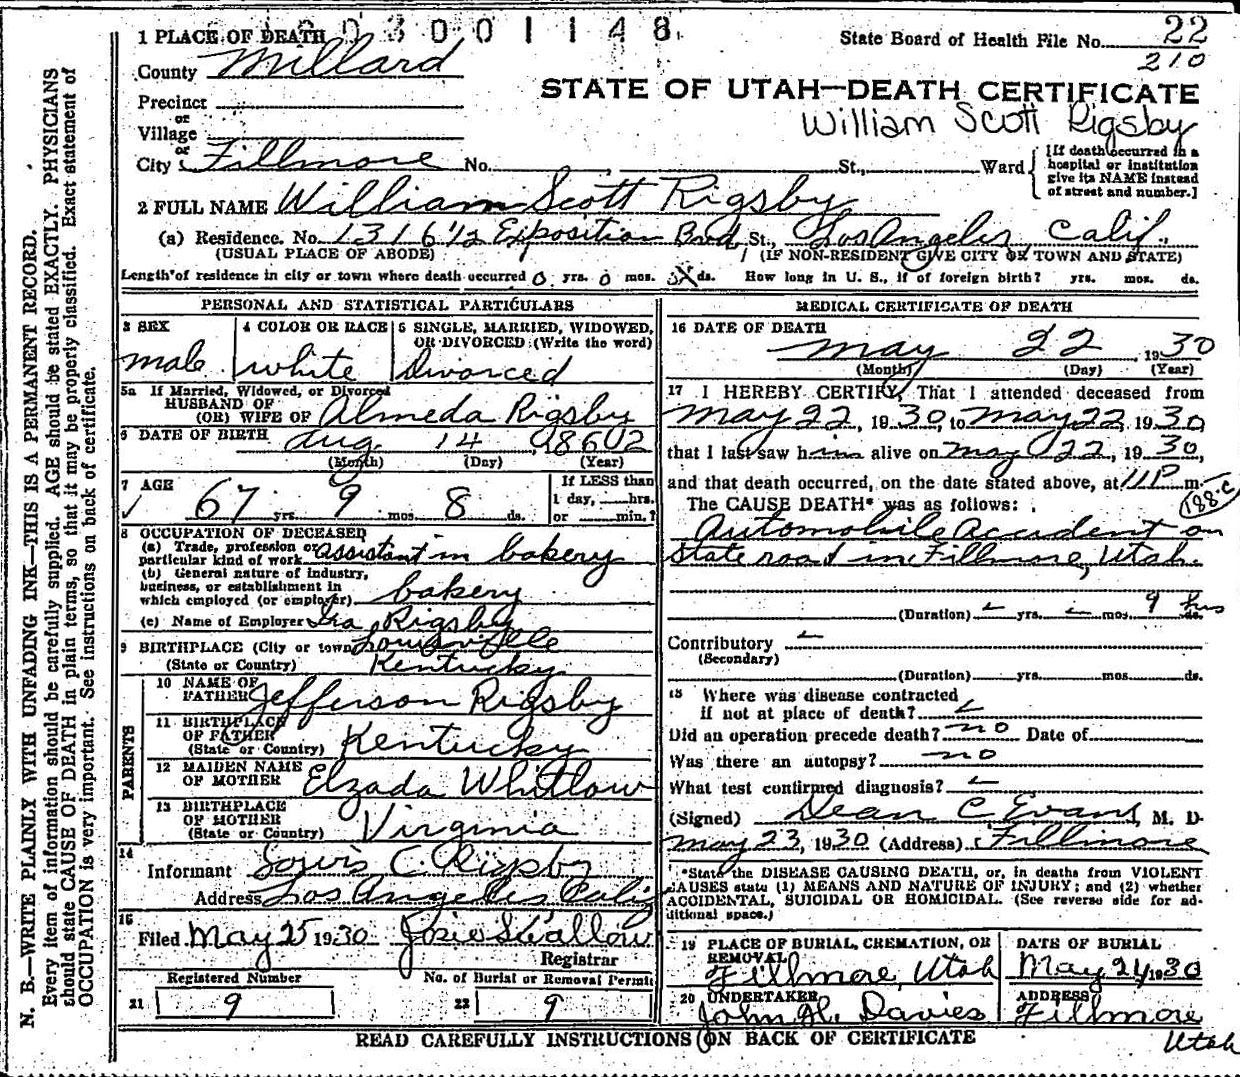 3001148
State Board of Health File No. 22
210
1 PLACE OF DEATH
County Millard
STATE OF UTAH—DEATH CERTIFICATE
William Scott Rigsby
Precinct
or
Village
or
City Fillmore No. St., Ward
[If death occurred in a hospital or institution give its NAME instead of street and number.]
2 FULL NAME William Scott Rigsby
(a) Residence. No. 1316 1/2 Exposition Bvd St., Los Angeles, Calif.
(USUAL PLACE OF ABODE) (IF NON-RESIDENT GIVE CITY OR TOWN AND STATE)
Length of residence in city or town where death occurred 0 yrs. 0 mos. ds. How long in U. S., if of foreign birth? yrs. mos. ds.
PERSONAL AND STATISTICAL PARTICULARS
3 SEX male
4 COLOR OR RACE white
5 SINGLE, MARRIED, WIDOWED, OR DIVORCED (Write the word) Divorced
5a If Married, Widowed, or Divorced
HUSBAND OF
(OR) WIFE OF Almeda Rigsby
6 DATE OF BIRTH Aug 14
(Month) (Day) (Year)
7 AGE 67 yrs. 9 mos. 8 ds.
If LESS than 1 day, hrs. or min.?
8 OCCUPATION OF DECEASED
(a) Trade, profession or particular kind of work assistant in bakery
(b) General nature of industry, business, or establishment in which employed (or employer) bakery
(c) Name of Employer Ira Rigsby
9 BIRTHPLACE (City or town) Louisville
(State or Country) Kentucky
PARENTS
10 NAME OF FATHER Jefferson Rigsby
11 BIRTHPLACE OF FATHER (State or Country) Kentucky
12 MAIDEN NAME OF MOTHER Elzada Whitlow
13 BIRTHPLACE OF MOTHER (State or Country) Virginia
14
Informant Louis C. Rigsby
Address Los Angeles Calif
15
Filed May 25 1930 Josie Swallow
Registrar
Registered Number No. of Burial or Removal Permit
21 9 22 9
MEDICAL CERTIFICATE OF DEATH
16 DATE OF DEATH
May 22, 1930
(Month) (Day) (Year)
17 I HEREBY CERTIFY, That I attended deceased from
May 22, 1930, to May 22, 1930
that I last saw him alive on May 22, 1930,
and that death occurred, on the date stated above, at 11 P m.
188-c
The CAUSE DEATH* was as follows:
Automobile Accident on
State road in Fillmore, Utah.
(Duration) yrs. mos. 9 hrs ds.
Contributory
(Secondary)
(Duration) yrs. mos. ds.
18 Where was disease contracted
if not at place of death?
Did an operation precede death? no Date of
Was there an autopsy? no
What test confirmed diagnosis?
(Signed) Dean C Evans, M. D.
May 23, 1930 (Address) Fillmore
*State the DISEASE CAUSING DEATH, or, in deaths from VIOLENT
CAUSES state (1) MEANS AND NATURE OF INJURY; and (2) whether
ACCIDENTAL, SUICIDAL OR HOMICIDAL. (See reverse side for ad-
ditional space.)
19 PLACE OF BURIAL, CREMATION, OR REMOVAL Fillmore, Utah
DATE OF BURIAL May 24 1930
20 UNDERTAKER John H. Davies
ADDRESS Fillmore
Utah
READ CAREFULLY INSTRUCTIONS ON BACK OF CERTIFICATE
N. B.—WRITE PLAINLY WITH UNFADING INK—THIS IS A PERMANENT RECORD.
Every item of information should be carefully supplied. AGE should be stated EXACTLY. PHYSICIANS
should state CAUSE OF DEATH in plain terms, so that it may be properly classified. Exact statement of
OCCUPATION is very important. See instructions on back of certificate.